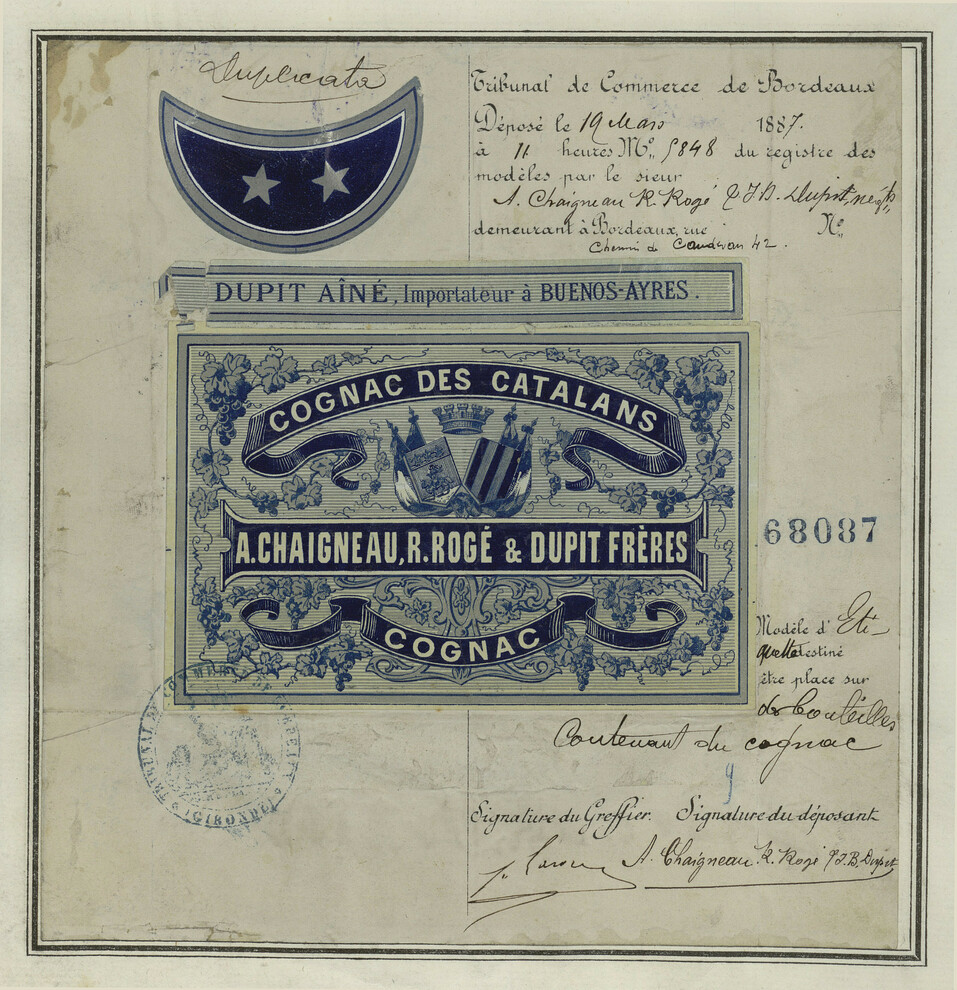 Duplicata
Tribunal de Commerce de Bordeaux
Déposé le 19 Mars 1887.
à 11 heures No 5848 du registre des
modèles par le sieur
A. Chaigneau R. Rogé & J.B. Dupit, négts
demeurant à Bordeaux, rue No
Chemin de 42.
DUPIT AÎNÉ, Importateur à BUENOS-AYRES.
COGNAC DES CATALANS
A. CHAIGNEAU, R. ROGÉ & DUPIT FRÈRES
COGNAC
68087
Modèle d'Eti-
quette destiné
être place sur
des bouteilles
Contenant du cognac
TRIBUNAL DE COMMERCE DE BORDEAUX
(GIRONDE)
9
Signature du Greffier. Signature du déposant
A. Chaigneau R. Rogé & J.B. Dupit